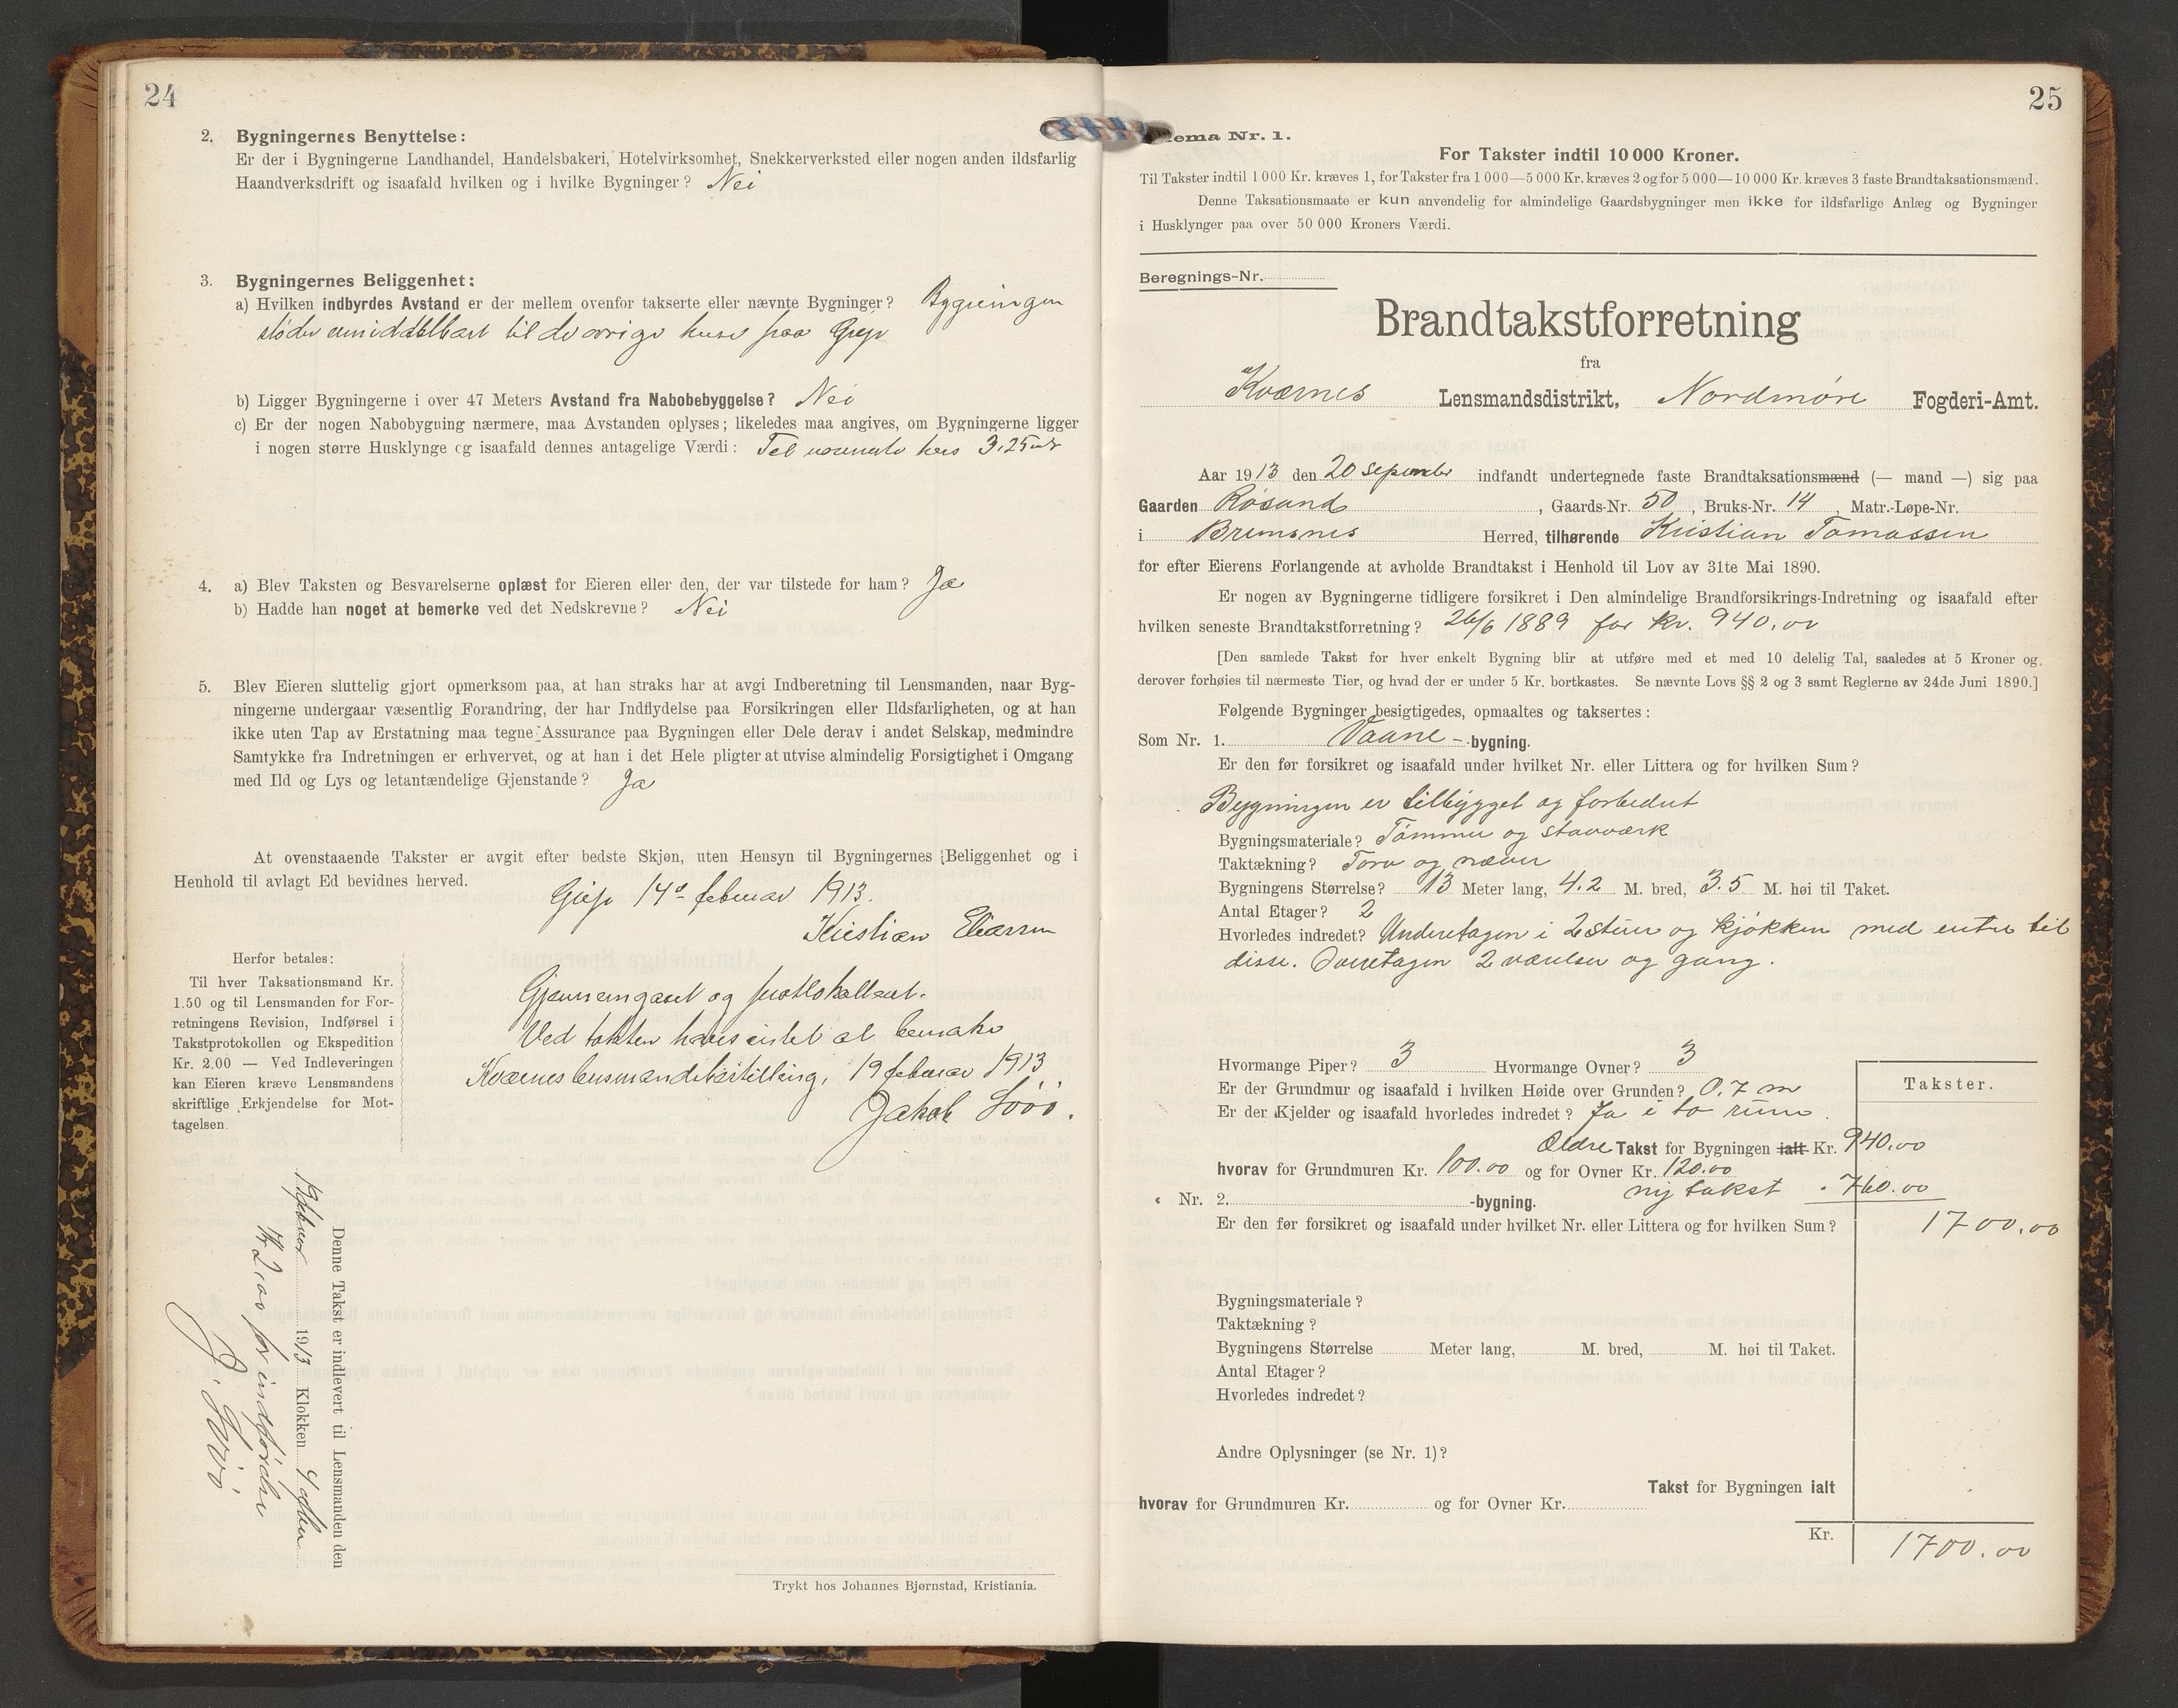 24
2. Bygningernes Benyttelse:
Er der i Bygningerne Landhandel, Handelsbakeri, Hotelvirksomhet, Snekkerverksted eller nogen anden ildsfarlig
Haandverksdrift og isaafald hvilken og i hvilke Bygninger? Nei
3. Bygningernes Beliggenhet:
a) Hvilken indbyrdes Avstand er der mellem ovenfor takserte eller nævnte Bygninger? Bygningen
støder umiddelbart til de øvrige huse paa Grip
b) Ligger Bygningerne i over 47 Meters Avstand fra Nabobebyggelse? Nei
c) Er der nogen Nabobygning nærmere, maa Avstanden oplyses; likeledes maa angives, om Bygningerne ligger
i nogen større Husklynge og isaafald dennes antagelige Værdi: Til næreste hus 3.25 mtr
4. a) Blev Taksten og Besvarelserne oplæst for Eieren eller den, der var tilstede for ham? Ja
b) Hadde han noget at bemerke ved det Nedskrevne? Nei
5. Blev Eieren sluttelig gjort opmerksom paa, at han straks har at avgi Indberetning til Lensmanden, naar Byg-
ningerne undergaar væsentlig Forandring, der har Indflydelse paa Forsikringen eller Ildsfarligheten, og at han
ikke uten Tap av Erstatning maa tegne Assurance paa Bygningen eller Dele derav i andet Selskap, medmindre
Samtykke fra Indretningen er erhvervet, og at han i det Hele pligter at utvise almindelig Forsigtighet i Omgang
med Ild og Lys og letantændelige Gjenstande? Ja
At ovenstaaende Takster er avgit efter bedste Skjøn, uten Hensyn til Bygningernes Beliggenhet og i
Henhold til avlagt Ed bevidnes herved.
Grip 14de februar 1913.
Kristian Eliassen
Herfor betales:
Til hver Taksationsmand Kr.
1.50 og til Lensmanden for For-
retningens Revision, Indførsel i
Takstprotokollen og Ekspedition
Kr. 2.00 — Ved Indleveringen
kan Eieren kræve Lensmandens
skriftlige Erkjendelse for Mot-
tagelsen.
Gjennemgaaet og protokollert.
Ved takten haves intet at bemærke
Kvernes lensmandsbestilling, 19 februar 1913
Jakob Sööö.
Denne Takst er indlevert til Lensmanden den
19 februar 1913 Klokken 4 efter
Kr 2,00 for indførelse
J. Sööö
Trykt hos Johannes Bjørnstad, Kristiania.
25
ema Nr. 1.
For Takster indtil 10 000 Kroner.
Til Takster indtil 1 000 Kr. kræves 1, for Takster fra 1 000—5 000 Kr. kræves 2 og for 5 000—10 000 Kr. kræves 3 faste Brandtaksationsmænd.
Denne Taksationsmaate er kun anvendelig for almindelige Gaardsbygninger men ikke for ildsfarlige Anlæg og Bygninger
i Husklynger paa over 50 000 Kroners Værdi.
Beregnings-Nr.
Brandtakstforretning
fra
Kværnes Lensmandsdistrikt, Nordmøre Fogderi-Amt.
Aar 1913 den 20 september indfandt undertegnede faste Brandtaksationsmænd (— mand —) sig paa
Gaarden Røsand, Gaards-Nr. 50, Bruks-Nr. 14, Matr.-Løpe-Nr.
i Bremsnes Herred, tilhørende Kristian Tomassen
for efter Eierens Forlangende at avholde Brandtakst i Henhold til Lov av 31te Mai 1890.
Er nogen av Bygningerne tidligere forsikret i Den almindelige Brandforsikrings-Indretning og isaafald efter
hvilken seneste Brandtakstforretning? 26/6 1889 for kr. 940.00
[Den samlede Takst for hver enkelt Bygning blir at utføre med et med 10 delelig Tal, saaledes at 5 Kroner og
derover forhøies til nærmeste Tier, og hvad der er under 5 Kr. bortkastes. Se nævnte Lovs §§ 2 og 3 samt Reglerne av 24de Juni 1890.]
Følgende Bygninger besigtigedes, opmaaltes og taksertes:
Som Nr. 1. Vaane- -bygning.
Er den før forsikret og isaafald under hvilket Nr. eller Littera og for hvilken Sum?
Bygningen er tilbygget og forbedret
Bygningsmateriale? Tømmer og stavværk
Taktækning? Torv og næver
Bygningens Størrelse? 13 Meter lang, 4.2 M. bred, 3.5 M. høi til Taket.
Antal Etager? 2
Hvorledes indredet? Underetagen i 2 stuer og kjøkken med entre til
disse. Overetagen 2 værelser og gang.
Hvormange Piper? 3 Hvormange Ovner? 3
Er der Grundmur og isaafald i hvilken Høide over Grunden? 0.7 m
Er der Kjelder og isaafald hvorledes indredet? Ja i to rum.
Takster.
Ældre Takst for Bygningen ialt Kr. 940.00
hvorav for Grundmuren Kr. 100.00 og for Ovner Kr. 120.00
ny takst - 760.00
« Nr. 2. -bygning.
Er den før forsikret og isaafald under hvilket Nr. eller Littera og for hvilken Sum? 1700.00
Bygningsmateriale?
Taktækning?
Bygningens Størrelse Meter lang, M. bred, M. høi til Taket.
Antal Etager?
Hvorledes indredet?
Andre Oplysninger (se Nr. 1)?
Takst for Bygningen ialt
hvorav for Grundmuren Kr. og for Ovner Kr.
Kr. 1700.00